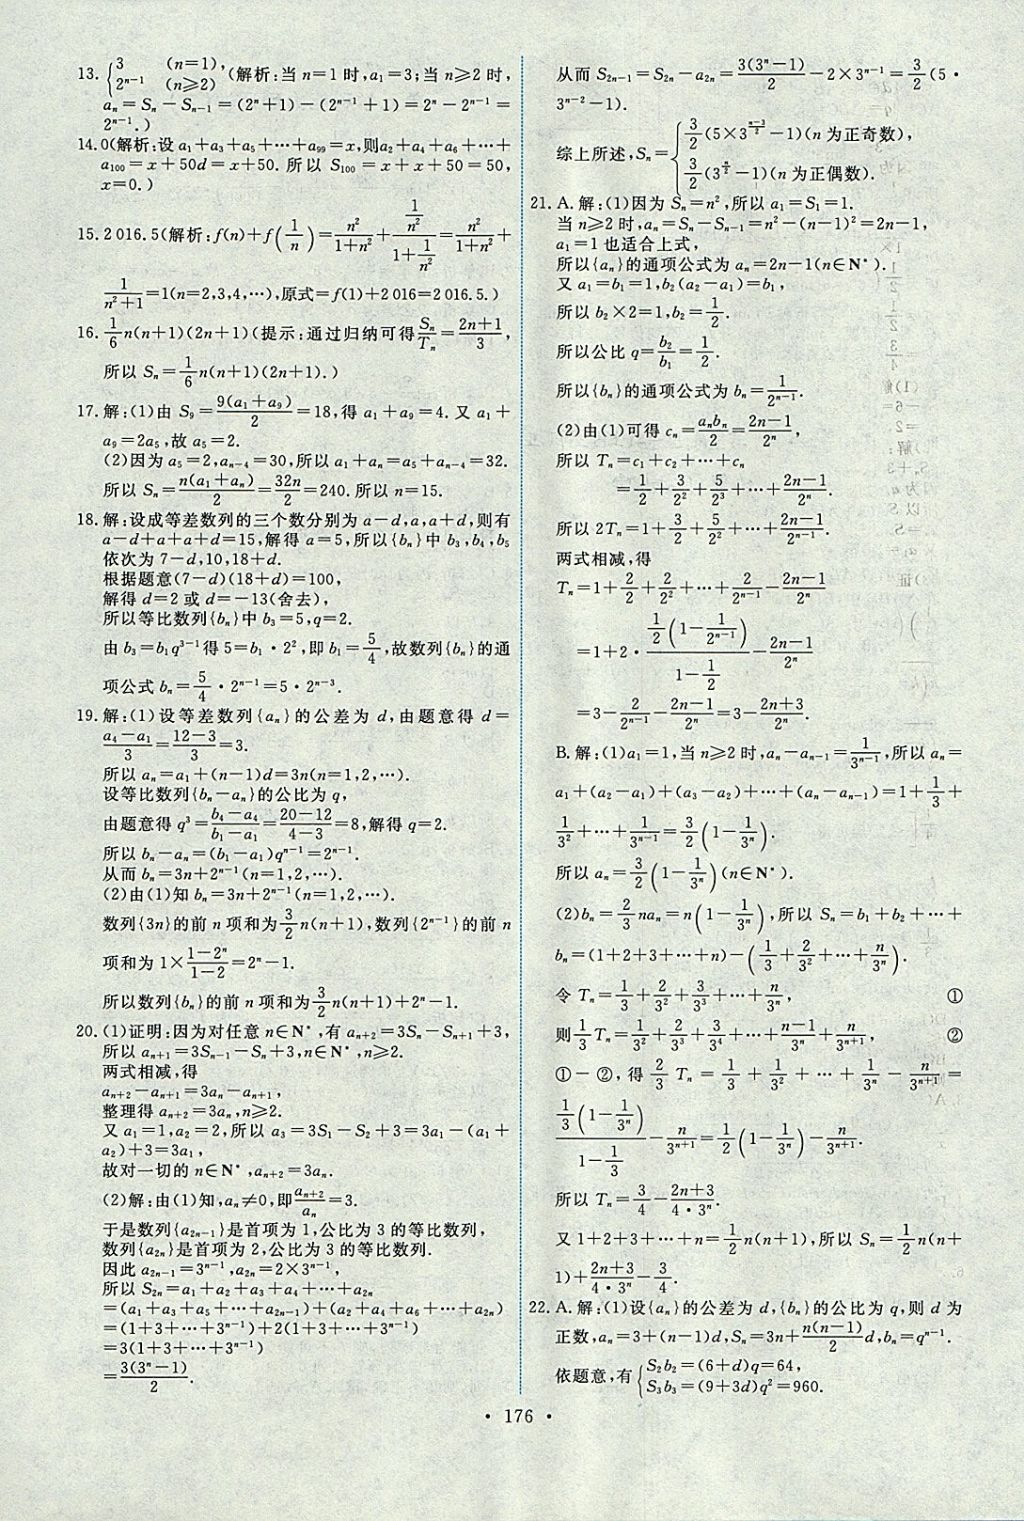 13. { 3 (n=1), 2ⁿ⁻¹ (n≥2) (解析:当 n=1 时,a₁=3;当 n≥2 时,
aₙ=Sₙ-Sₙ₋₁=(2ⁿ+1)-(2ⁿ⁻¹+1)=2ⁿ-2ⁿ⁻¹=
2ⁿ⁻¹.)
14. 0(解析:设 a₁+a₃+a₅+…+a₉₉=x,则a₂+a₄+a₆+…+
a₁₀₀=x+50d=x+50. 所以 S₁₀₀=x+x+50=50,
x=0.)
15. 2 016.5(解析:f(n)+f(1/n)=n²/(1+n²)+(1/n²)/(1+1/n²)=n²/(1+n²)+
1/(n²+1)=1(n=2,3,4,…),原式=f(1)+2 016=2 016.5.)
16. 1/6 n(n+1)(2n+1)(提示:通过归纳可得Sₙ/Tₙ=(2n+1)/3,
所以 Sₙ=1/6 n(n+1)(2n+1).)
17. 解:(1)由 S₉=9(a₁+a₉)/2=18,得 a₁+a₉=4. 又 a₁+
a₉=2a₅,故 a₅=2.
(2)因为 a₅=2,aₙ₋₄=30,所以 a₁+aₙ=a₅+aₙ₋₄=32.
所以 Sₙ=n(a₁+aₙ)/2=32n/2=240. 所以 n=15.
18. 解:设成等差数列的三个数分别为 a-d,a,a+d,则有
a-d+a+a+d=15,解得 a=5,所以{bₙ}中 b₃,b₄,b₅
依次为 7-d,10,18+d.
根据题意(7-d)(18+d)=100,
解得 d=2 或 d=-13(舍去),
所以等比数列{bₙ}中 b₃=5,q=2.
由 b₃=b₁q³⁻¹得 5=b₁·2²,即 b₁=5/4,故数列{bₙ}的通
项公式 bₙ=5/4·2ⁿ⁻¹=5·2ⁿ⁻³.
19. 解:(1)设等差数列{aₙ}的公差为 d,由题意得 d=
(a₄-a₁)/3=(12-3)/3=3.
所以 aₙ=a₁+(n-1)d=3n(n=1,2,…).
设等比数列{bₙ-aₙ}的公比为 q,
由题意得 q³=(b₄-a₄)/(b₁-a₁)=(20-12)/(4-3)=8,解得 q=2.
所以 bₙ-aₙ=(b₁-a₁)qⁿ⁻¹=2ⁿ⁻¹.
从而 bₙ=3n+2ⁿ⁻¹(n=1,2,…).
(2)由(1)知 bₙ=3n+2ⁿ⁻¹(n=1,2,…).
数列{3n}的前 n 项和为3/2 n(n+1),数列{2ⁿ⁻¹}的前 n
项和为 1×(1-2ⁿ)/(1-2)=2ⁿ-1.
所以数列{bₙ}的前 n 项和为3/2 n(n+1)+2ⁿ-1.
20. (1)证明:因为对任意 n∈N*,有 aₙ₊₂=3Sₙ-Sₙ₊₁+3,
所以 aₙ₊₁=3Sₙ₋₁-Sₙ+3,n∈N*,n≥2.
两式相减,得
aₙ₊₂-aₙ₊₁=3aₙ-aₙ₊₁,
整理得 aₙ₊₂=3aₙ,n≥2.
又 a₁=1,a₂=2,所以 a₃=3S₁-S₂+3=3a₁-(a₁+
a₂)+3=3a₁,
故对一切的 n∈N*,aₙ₊₂=3aₙ.
(2)解:由(1)知,aₙ≠0,即aₙ₊₂/aₙ=3.
于是数列{a₂ₙ₋₁}是首项为 1,公比为 3 的等比数列,
数列{a₂ₙ}是首项为 2,公比为 3 的等比数列.
因此 a₂ₙ₋₁=3ⁿ⁻¹,a₂ₙ=2×3ⁿ⁻¹.
所以 S₂ₙ=a₁+a₂+a₃+a₄+…+a₂ₙ
=(a₁+a₃+a₅+…+a₂ₙ₋₁)+(a₂+a₄+a₆+…+a₂ₙ)
=(1+3+…+3ⁿ⁻¹)+2(1+3+…+3ⁿ⁻¹)
=3(1+3+…+3ⁿ⁻¹)
=3(3ⁿ-1)/2.
从而 S₂ₙ₋₁=S₂ₙ-a₂ₙ=3(3ⁿ-1)/2-2×3ⁿ⁻¹=3/2(5·
3ⁿ⁻²-1).
综上所述,Sₙ={ 3/2(5×3^((n-3)/2)-1)(n 为正奇数), 3/2(3^(n/2)-1)(n 为正偶数).
21. A. 解:(1)因为 Sₙ=n²,所以 a₁=S₁=1.
当 n≥2 时,aₙ=Sₙ-Sₙ₋₁=n²-(n-1)²=2n-1,
a₁=1 也适合上式,
所以{aₙ}的通项公式为 aₙ=2n-1(n∈N*).
又 a₁=b₁=1,b₂(a₂-a₁)=b₁,
所以 b₂×2=1,b₂=1/2.
所以公比 q=b₂/b₁=1/2.
所以{bₙ}的通项公式为 bₙ=1/2ⁿ⁻¹.
(2)由(1)可得 cₙ=aₙbₙ/2=(2n-1)/2ⁿ,
所以 Tₙ=c₁+c₂+…+cₙ
=1/2+3/2²+5/2³+…+(2n-1)/2ⁿ.
所以 2Tₙ=1+3/2+5/2²+…+(2n-1)/2ⁿ⁻¹.
两式相减,得
Tₙ=1+2/2+2/2²+…+2/2ⁿ⁻¹-(2n-1)/2ⁿ
=1+2·(1/2(1-1/2ⁿ⁻¹))/(1-1/2)-(2n-1)/2ⁿ
=3-2/2ⁿ⁻¹-(2n-1)/2ⁿ=3-(2n+3)/2ⁿ.
B. 解:(1)a₁=1,当 n≥2 时,aₙ-aₙ₋₁=1/3ⁿ⁻¹,所以 aₙ=
a₁+(a₂-a₁)+(a₃-a₂)+…+(aₙ-aₙ₋₁)=1+1/3+
1/3²+…+1/3ⁿ⁻¹=3/2(1-1/3ⁿ).
所以 aₙ=3/2(1-1/3ⁿ)(n∈N*).
(2)bₙ=2/3 naₙ=n(1-1/3ⁿ),所以 Sₙ=b₁+b₂+…+
bₙ=(1+2+3+…+n)-(1/3+2/3²+…+n/3ⁿ).
令 Tₙ=1/3+2/3²+3/3³+…+n/3ⁿ, ①
则1/3 Tₙ=1/3²+2/3³+3/3⁴+…+(n-1)/3ⁿ+n/3ⁿ⁺¹, ②
①-②,得 2/3 Tₙ=1/3+1/3²+…+1/3ⁿ-n/3ⁿ⁺¹=
(1/3(1-1/3ⁿ))/(1-1/3)-n/3ⁿ⁺¹=1/2(1-1/3ⁿ)-n/3ⁿ⁺¹.
所以 Tₙ=3/4-(2n+3)/(4·3ⁿ).
又 1+2+3+…+n=1/2 n(n+1),所以 Sₙ=1/2 n(n+
1)+(2n+3)/(4·3ⁿ)-3/4.
22. A. 解:(1)设{aₙ}的公差为 d,{bₙ}的公比为 q,则 d 为
正数,aₙ=3+(n-1)d,Sₙ=3n+n(n-1)/2 d,bₙ=qⁿ⁻¹.
依题意,有{ S₂b₂=(6+d)q=64, S₃b₃=(9+3d)q²=960.
· 176 ·